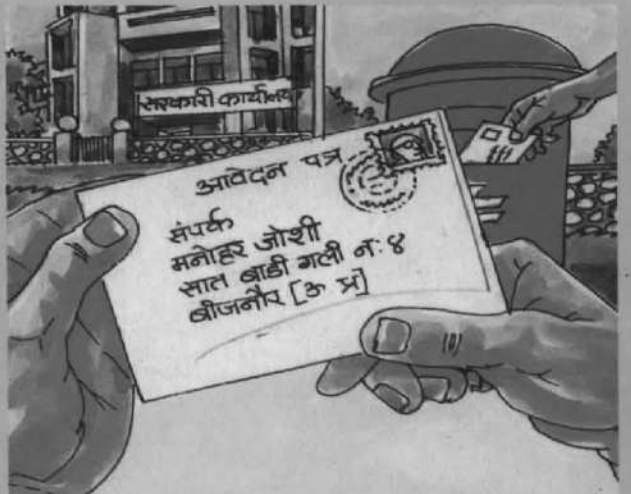 सरकारी कार्यालय
आवेदन पत्र
संपर्क
मनोहर जोशी
सात बाडी गली न: ४
बीजनौर [ऊ प्र]